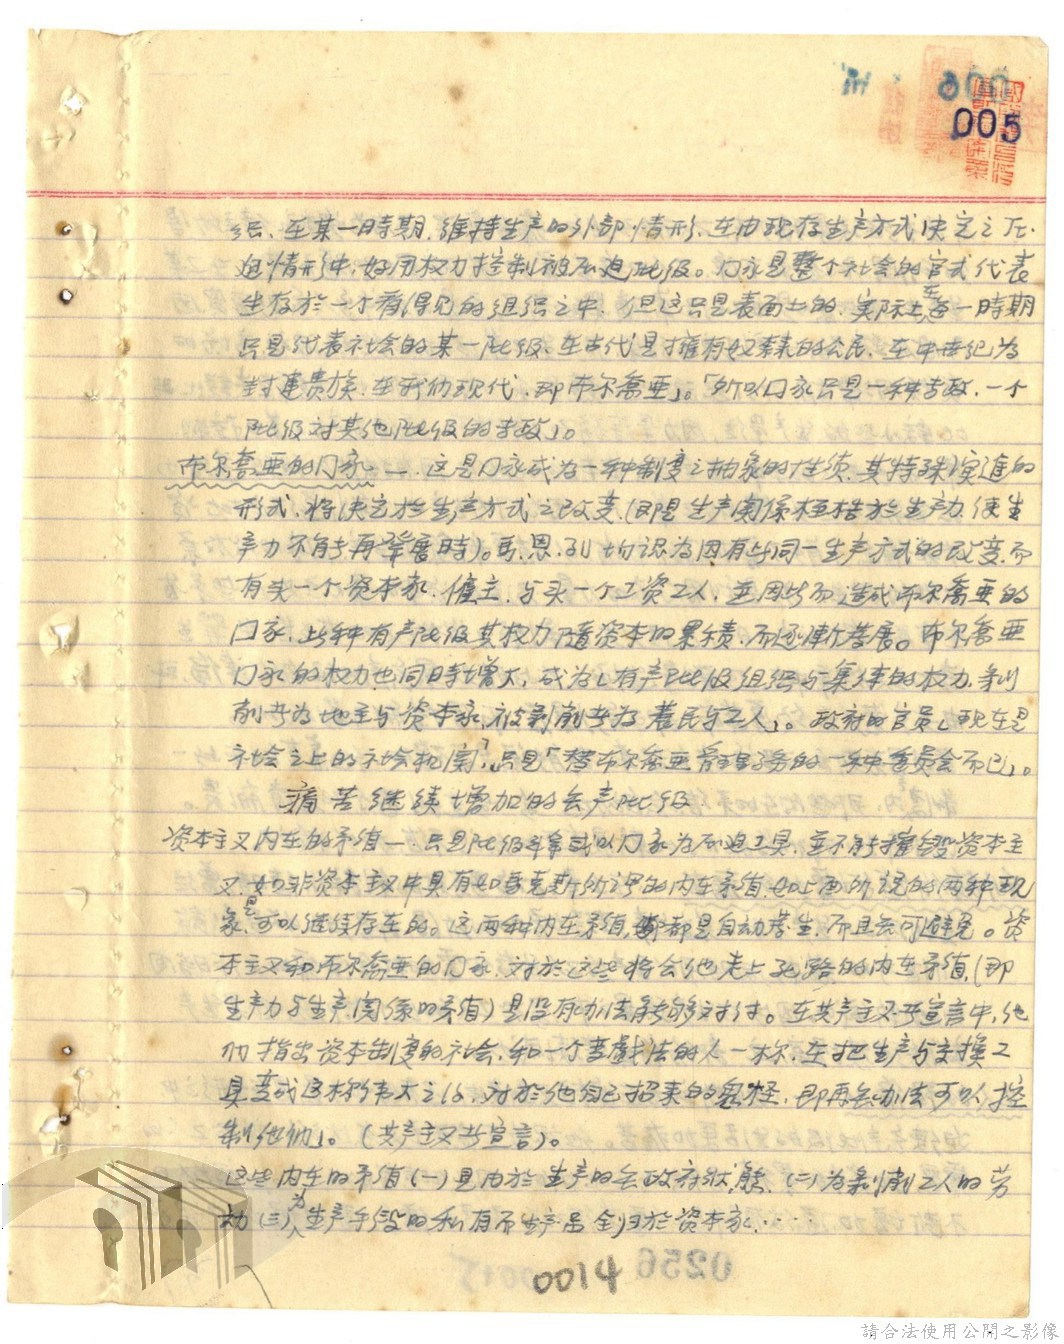 005
织、在某一時期、維持生产的外部情形、在由现存生产方式决定之压
迫情形中、好用权力控制被压迫阶级。门家是整个社会的官式代表
生存於一个看得見的组织之中、但这只是表面上的、实际上在每一時期
只是代表社会的某一阶级、在古代是擁有奴隶的公民、在中世纪为
封建贵族、在我们现代、即布尔喬亜」。「所以门家只是一种专政、一个
阶级对其他阶级的专政」。
布尔喬亜的门家—— 这是门家成为一种制度之抽象的性质、其特殊演進的
形式、将决定於生产方式之改变、(即是生产関係桎梏於生产力、使生
产力不能再發展時)。馬、恩、列、均認为因有与同一生产方式的改变、而
有头一个资本家、僱主、与头一个工资工人、並因此而造成布尔喬亜的
门家、此种有产阶级其权力隨资本的累積、而逐漸發展。布尔喬亜
门家的权力也同時增大、成为「有产阶级组织与集体的权力、剥
削者为地主与资本家、被剥削者为農民与工人」。政府的官员「现在是
社会之上的社会机関」、只是「替布尔喬亜管理事务的一种委员会而已」。
痛苦继续增加的無产阶级
资本主义内在的矛盾— 只是阶级斗争或以门家为压迫工具、並不能摧毁资本主
义、如非资本主义中具有如馬克斯所谓的内在矛盾、如上面所说的两种现
象、是可以继续存在的。这两种内在矛盾、都是自动發生、而且無可避免。资
本主义和布尔喬亜的门家、对於这些将会他走上死路的内在矛盾、(即
生产力与生产関係的矛盾)是没有办法能够对付。在共产主义者宣言中、他
们指出资本制度的社会、和一个变戲法的人一样、在把生产与交換工
具变成这样伟大之後、对於他自己招来的鬼怪、即再無办法可以控
制他们」。(共产主义者宣言)。
这些内在的矛盾(一)是由於生产的無政府状態、(二)为剥削工人的劳
动(三)为生产手段的私有而生产品全归於资本家、……
0014
0256
請合法使用公開之影像